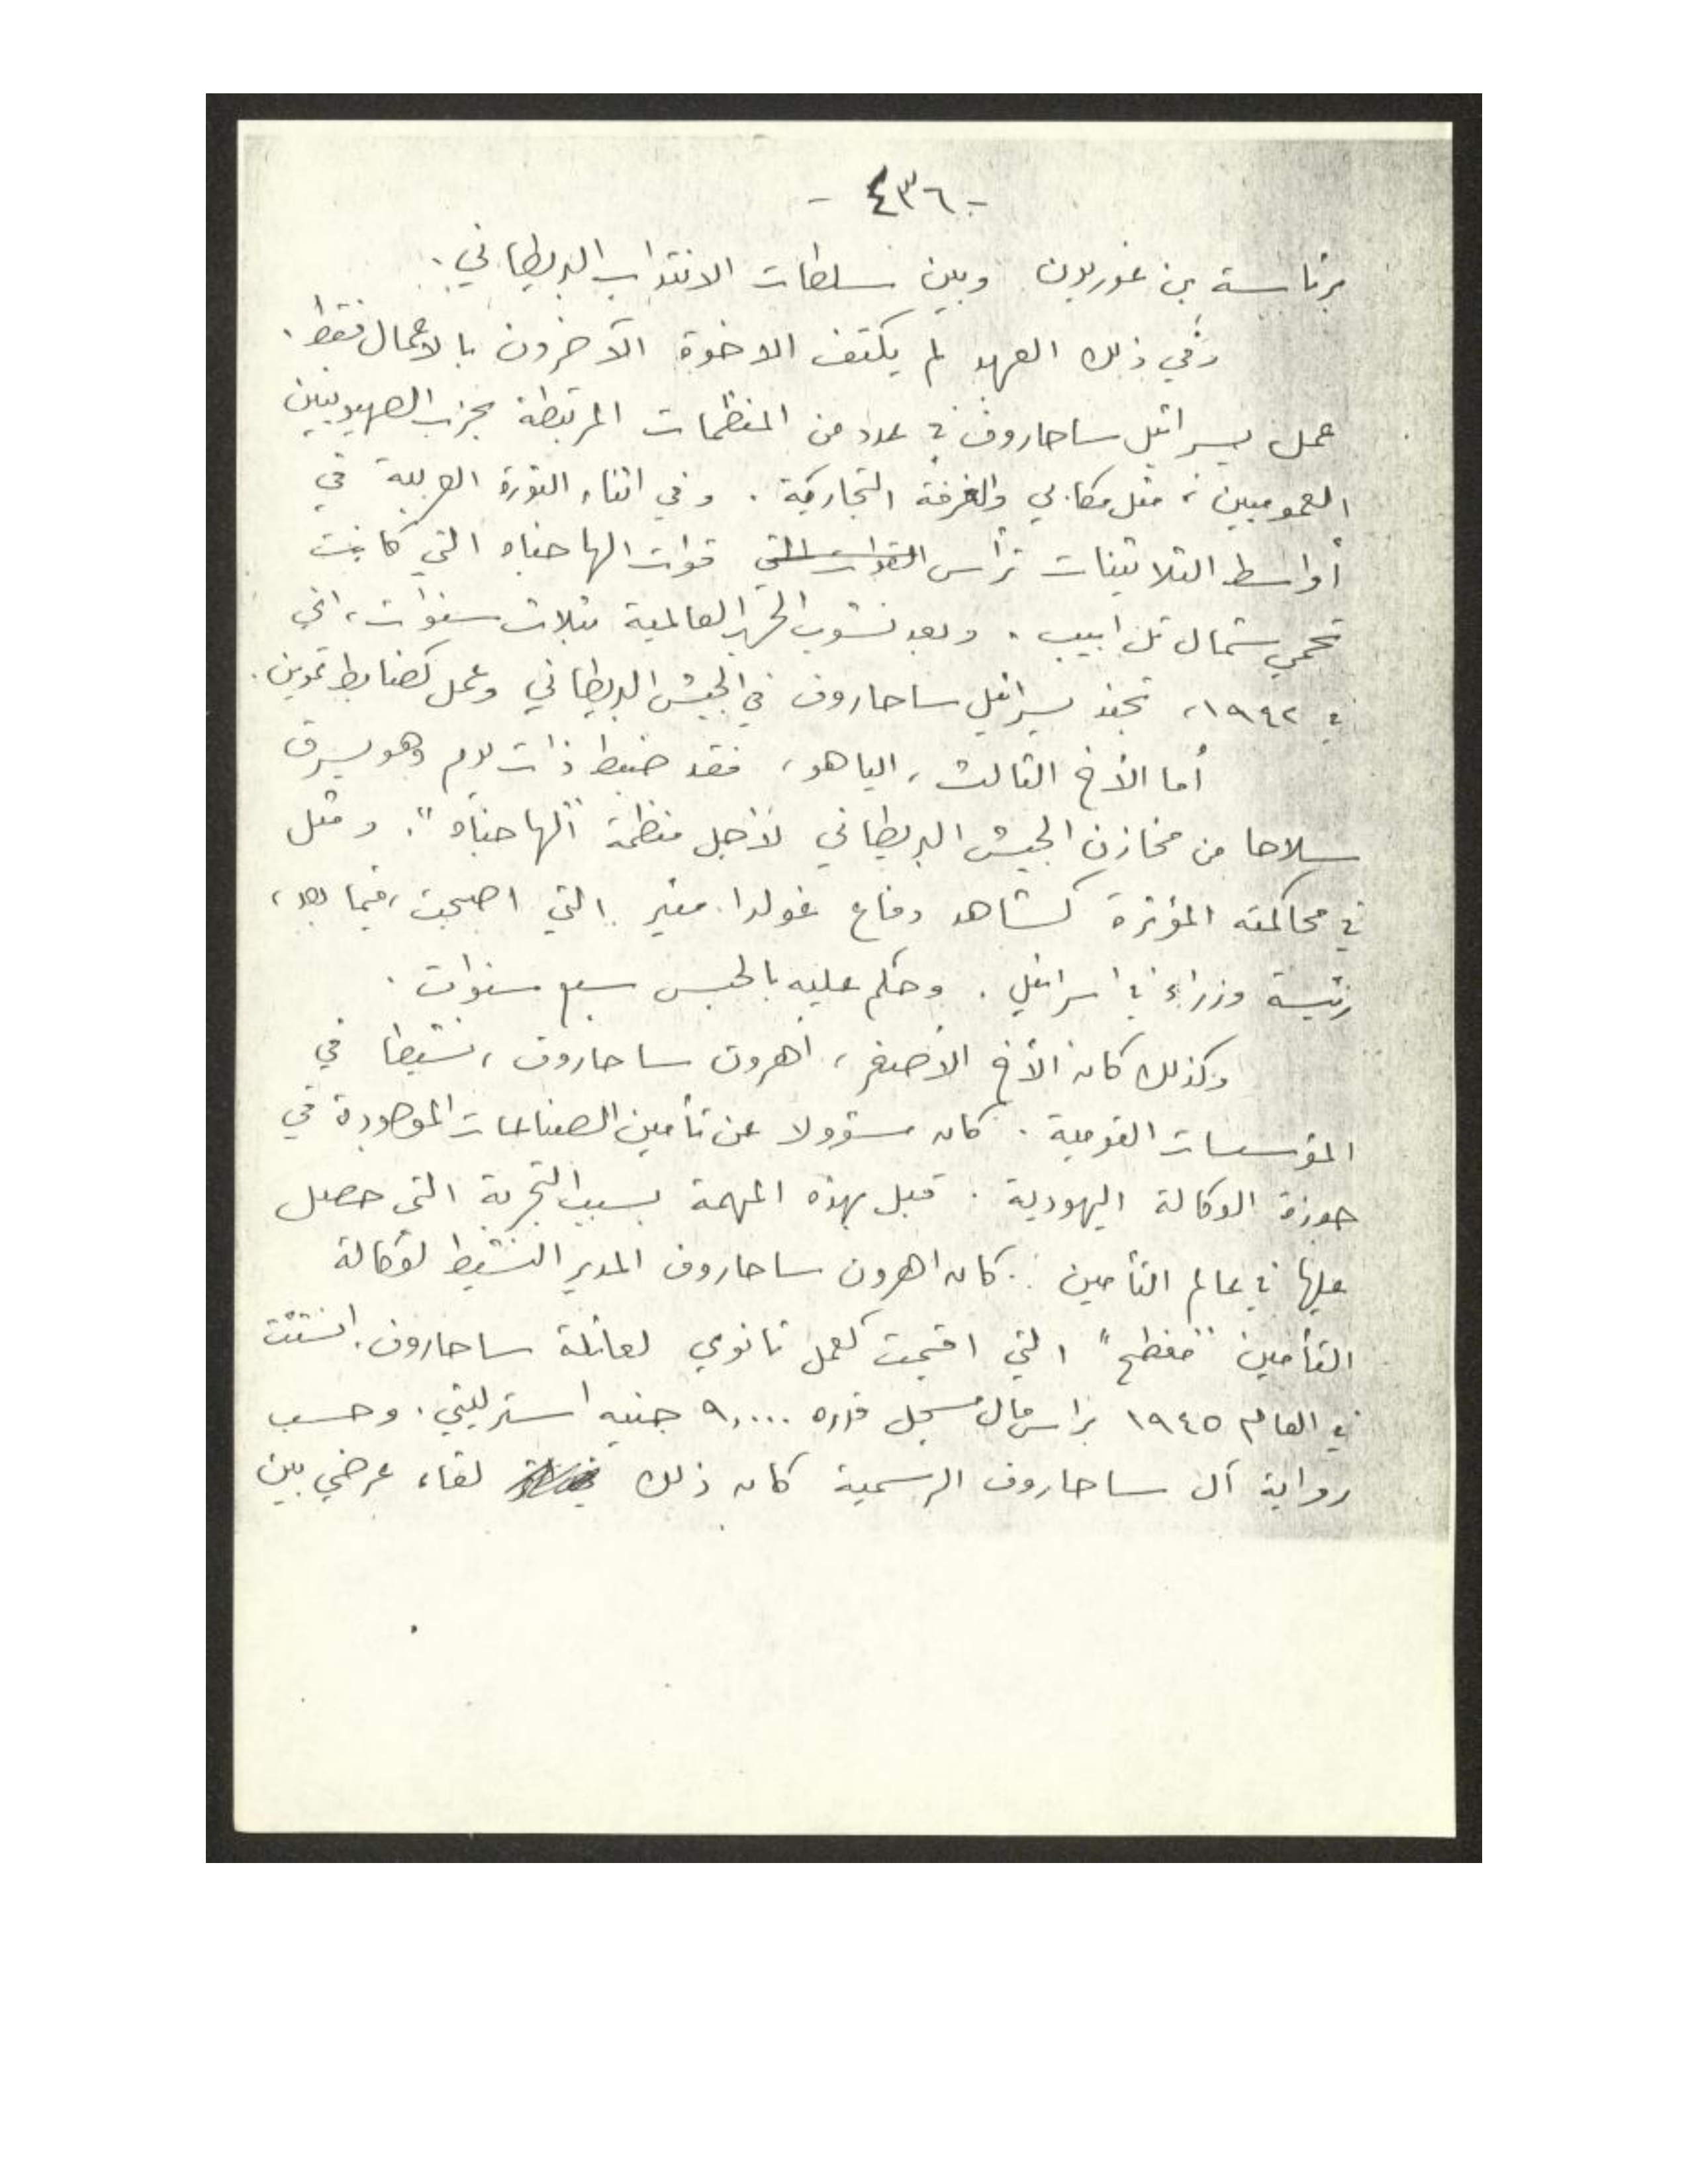 - ٤٣٦ -
برئاسة بن غوريون وبين سلطات الانتداب البريطاني.
وفي ذلك العهد لم يكتف الاخوة الآخرون بالاعمال فقط.
عمل يسرائيل ساحاروف في عدد من المنظمات المرتبطة بحزب الصهيونيين
العموميين، مثل مكابي والغرفة التجارية. وفي اثناء الثورة العربية في
أواسط الثلاثينات ترأس القوات التي قوات الهاجناه التي كانت
تحمي شمال تل ابيب. وبعد نشوب الحرب العالمية بثلاث سنوات، اي
في ١٩٤٢، تجند يسرائيل ساحاروف في الجيش البريطاني وعمل كضابط تموين.
أما الأخ الثالث، الياهو، فقد ضبط ذات يوم وهو يسرق
سلاحا من مخازن الجيش البريطاني لأجل منظمة "الهاجناه". ومثل
في محاكمته المؤثرة كشاهد دفاع غولدا مئير التي اصبحت، فيما بعد،
رئيسة وزراء في اسرائيل. وحكم عليه بالحبس سبع سنوات.
وكذلك كان الأخ الأصغر، أهرون ساحاروف، نشيطا في
المؤسسات القومية. كان مسؤولا عن تأمين الصناعات الموجودة في
حوزة الوكالة اليهودية. قبل بهذه المهمة بسبب التجربة التي حصل
عليها في عالم التأمين: كان اهرون ساحاروف المدير النشيط لوكالة
التأمين "مفطح" التي اقيمت كعمل ثانوي لعائلة ساحاروف. انشئت
في العام ١٩٤٥ برأس مال مسجل قدره ٩,٠٠٠ جنيه استرليني. وحسب
رواية آل ساحاروف الرسمية كان ذلك لقاء عرضي بين